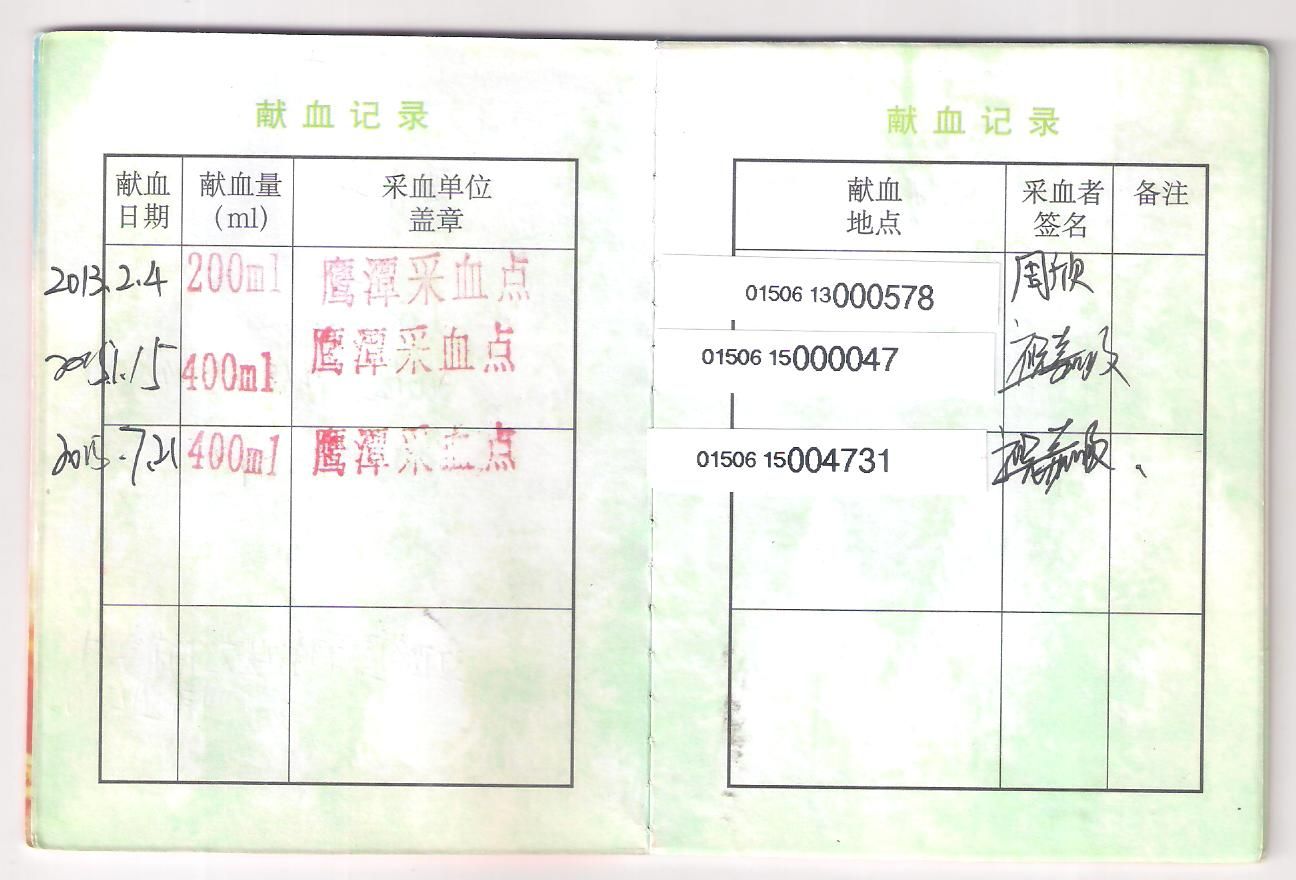 献血记录
献血日期 献血量(ml) 采血单位盖章
2013.2.4 200ml 鹰潭采血点
2015.1.15 400ml 鹰潭采血点
2015.7.21 400ml 鹰潭采血点
献血记录
献血地点 采血者签名 备注
01506 13000578 周欣
01506 15000047
01506 15004731